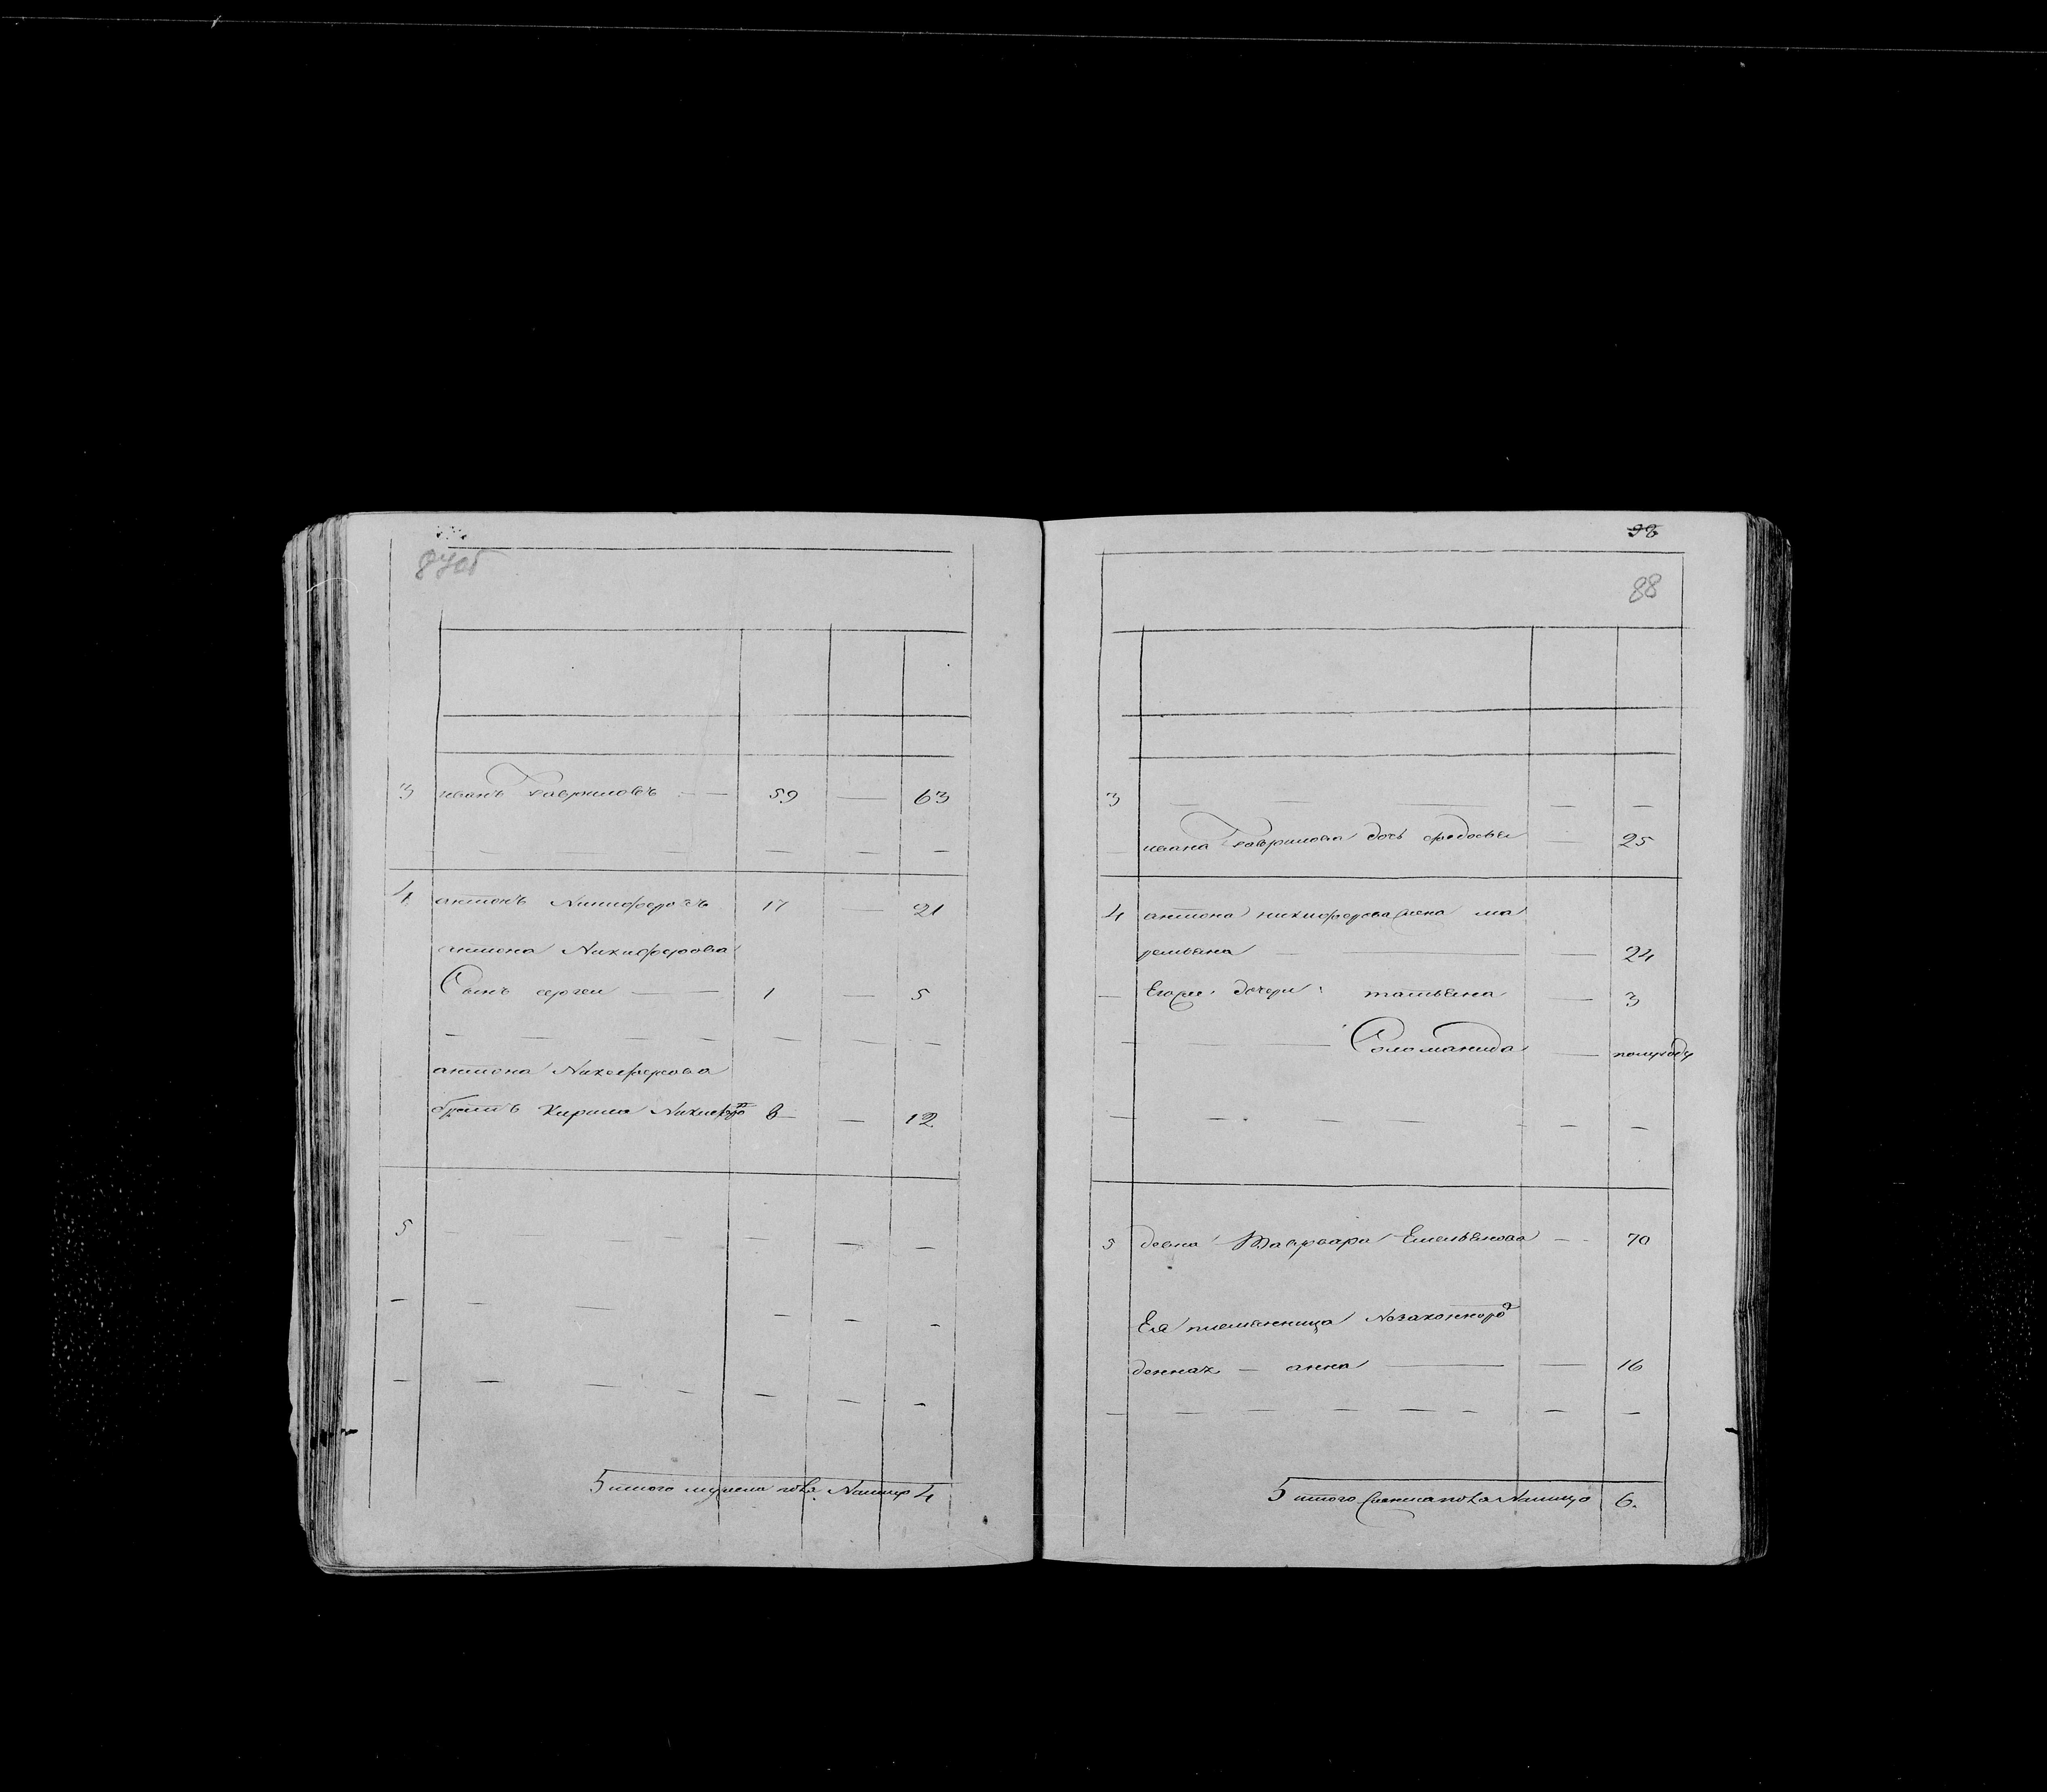 87об
3 иванъ Гавриловъ — 59 — 63
— — — — —
4 антонъ Никифоровъ 17 — 21
антона Никифорова
Сынъ сергеи — 1 — 5
— — — — — — —
антона Никифорова
братъ Кирила Никифоро 8 — 12
5 — — — — — — —
— — — — — —
— — — — — — —
5 итого мужеска пола Налицо 4
98
88
3 — — — — —
— ивана Гаврилова дочь федосья — 25
4 антона никифорова жена ма
ремьяна — — — 24
— Егоже дочери: татьяна — 3
— — — Соломанида — полугоду
— — — — — — —
5 девка Варвара Емельянова — 70
Ея племянница Незаконноро
денная — анна — — 16
— — — — — — — —
5 итого женска пола Налицо 6.